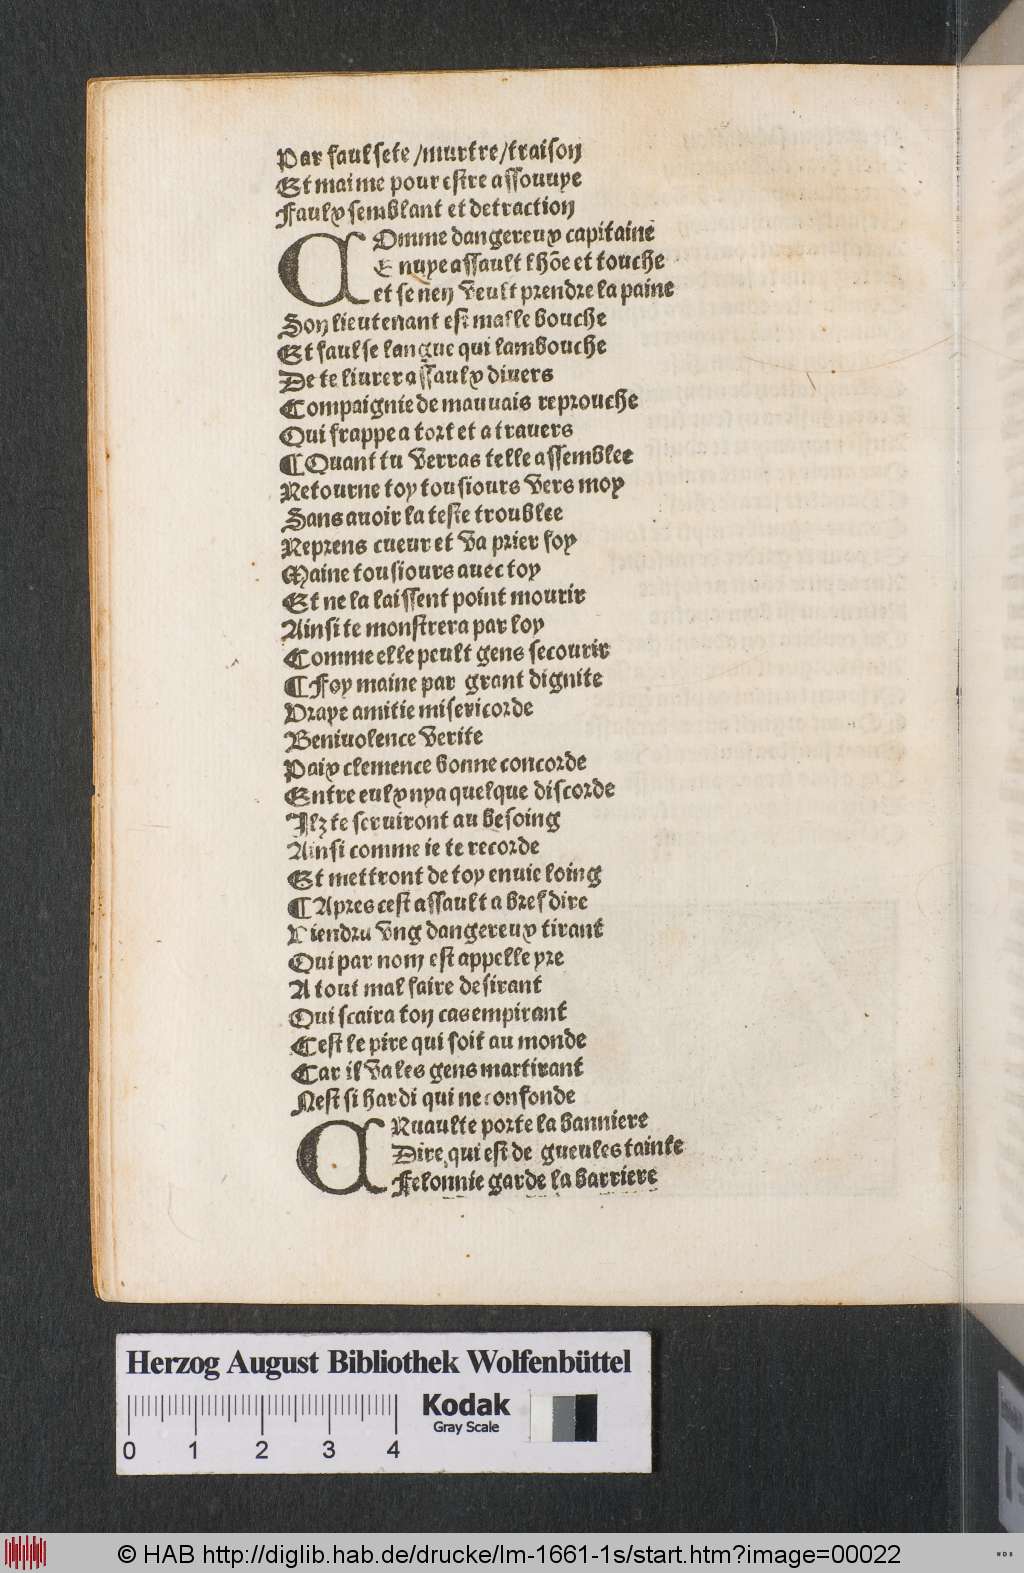 Par faulsete /murtre/traison
Et maime pour estre assouuye
Faulx semblant et detraction
COmme dangereux capitaine
Enuye assault lhõe et touche
et se nen veult prendre la paine
Son lieutenant est malle bouche
Et faulse langue qui lambouche
De te liurer assaulx diuers
Compaignie de mauuais reprouche
Qui frappe a tort et a trauers
¶Quant tu verras telle assemblee
Retourne toy tousiours vers moy
Sans auoir la teste troublee
Reprens cueur et va prier foy
Maine tousiours auec toy
Et ne la laissent point mourir
Ainsi te monstrera par loy
Comme elle peult gens secourir
¶Foy maine par grant dignite
Vraye amitie misericorde
Beniuolence verite
Paix clemence bonne concorde
Entre eulx nya quelque discorde
Ilz te seruiront au besoing
Ainsi comme ie te recorde
Et mettront de toy enuie loing
¶Apres cest assault a bref dire
Viendra vng dangereux tirant
Qui par nom est appelle yre
A tout mal faire desirant
Qui scaira ton cas empirant
Cest le pire qui soit au monde
Car il va les gens martirant
Nest si hardi qui ne confonde
CRuaulte porte la banniere
Dire qui est de gueules tainte
Felonnie garde la barriere
Herzog August Bibliothek Wolfenbüttel
Kodak
Gray Scale
0 1 2 3 4
© HAB http://diglib.hab.de/drucke/lm-1661-1s/start.htm?image=00022